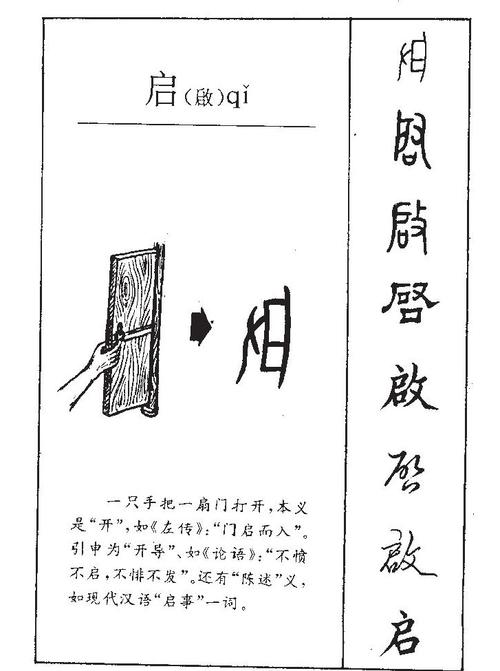 启(啟)qǐ
一只手把一扇门打开,本义
是“开”,如《左传》:“门启而入”。
引申为“开导”、如《论语》:“不愤
不启,不悱不发”。还有“陈述”义,
如现代汉语“启事”一词。
啓
啟
啟
启